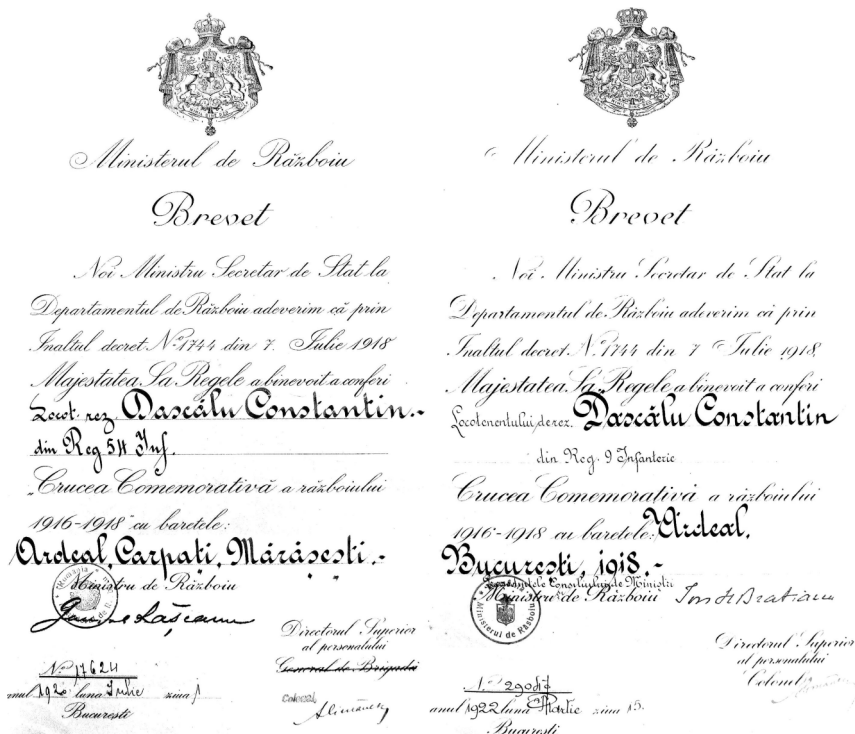 Ministerul de Războiu
Brevet
Noi Ministru Secretar de Stat la
Departamentul de Războiu adeverim că prin
Inaltul decret Nº 1744 din 7. Iulie 1918
Majestatea Sa Regele a binevoit a conferi
Locot. rez. Dascălu Constantin.-
din Reg 54 Inf.
„Crucea Comemorativă a războiului
1916-1918" cu baretele:
Ardeal, Carpati, Mărăsesti.-
Ministru de Războiu
Directorul Superior
al personalului
General de Brigadă
Colonel
Nº 17624
anul 1920 luna Iulie ziua 1
Bucuresti
Ministerul de Războiu
Brevet
Noi Ministru Secretar de Stat la
Departamentul de Războiu adeverim că prin
Inaltul decret N. 1744 din 7 Iulie 1918,
Majestatea Sa Regele a binevoit a conferi
Locotenentului de rez. Dascălu Constantin
din Reg. 9 Infanterie
Crucea Comemorativă a războiului
1916-1918 cu baretele: Ardeal,
Bucuresti, 1918.-
Presedintele Consiliului de Ministri
Ministru de Războiu
Ministerul de Războiu
Directorul Superior
al personalului
Colonel
anul 1922 luna Martie ziua 15.
Bucuresti